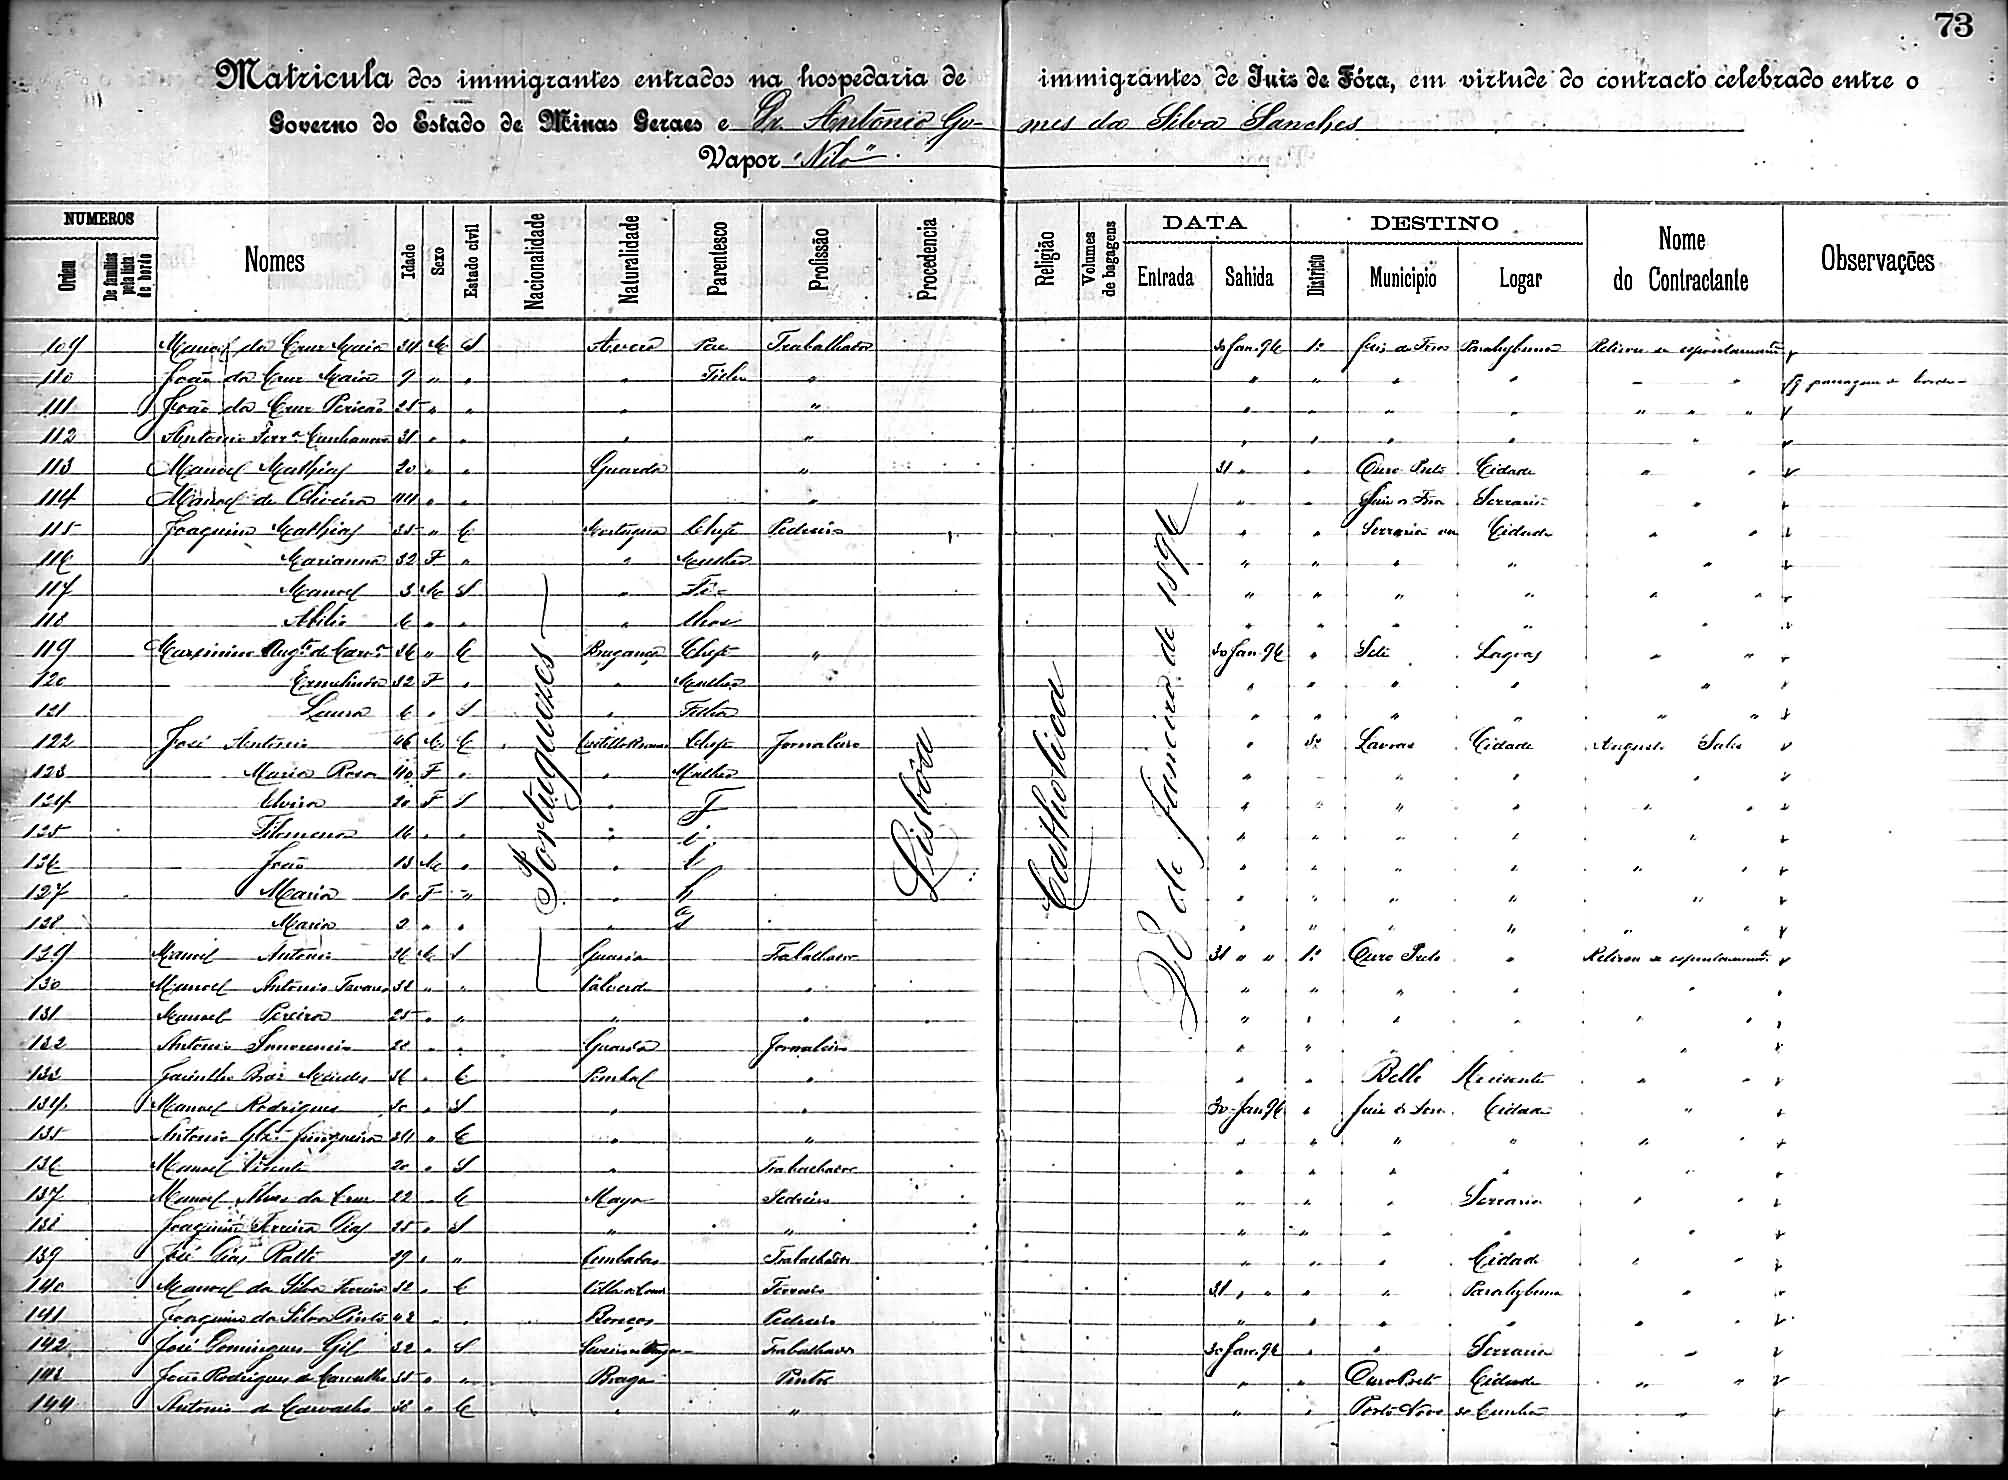 73
Matricula dos immigrantes entrados na hospedaria de immigrantes de Juiz de Fóra, em virtude do contracto celebrado entre o
Governo do Estado de Minas Geraes e Dr. Antônio Gomes da Silva Sanches
Vapor "Nilo"
NUMEROS DATA DESTINO
Ordem De familias pela lista de bordo Nomes Idade Sexo Estado civil Nacionalidade Naturalidade Parentesco Profissão Procedencia Religião Volumes de bagagens Entrada Sahida Districto Municipio Logar Nome do Contractante Observações
Portuguezes
Lisbôa
Catholica
28 de Janeiro de 1896
109 Manoel da Cruz Maia M S Avero Pae Trabalhador 30 Jan. 96 1º Juiz de Fora Parahybuna Retirou se espontaneamte
110 João da Cruz Maia 9 " " " Filho " " " " " " passagem de bordo
111 João da Cruz 25 " " " " " " " " "
112 Antonio Ferra 31 " " " " " " " " "
113 Manoel Mathias 20 " " Guarda " 31 " " Ouro Preto Cidade "
114 Manoel de Oliveira 44 " " " " " Juiz de Fora Serraria "
115 Joaquim Mathias 35 " C Mortagua Chefe Pedreiro " " Serraria Cidade "
116 Marianna 32 F " " Mulher " " " " "
117 Manoel 3 M S " Fi- " " " " "
118 Abilio 6 " " " lhos " " " " "
119 Augto de Carvo 36 " C Bragança Chefe " 30 Jan. 96 " Lagoas "
120 Ermelinda 32 F " " Mulher " " " " "
121 Laura 6 " S " Filha " " " " "
122 José Antonio 46 M C Chefe Jornaleiro " 3º Lavras Cidade Augusto Salles
123 Maria Rosa 40 F " " Mulher " " " "
124 Elvira 20 F S " F " " " " "
125 Filomena 16 " " " i " " " " "
126 João 13 M " " l " " " " "
127 Maria 10 F " " h " " " " "
128 Maria 2 " " " a s " " " " "
129 Manoel Antonio 26 M S Guarda Trabalhador 31 " " 1º Ouro Preto " Retirou se espontaneamte
130 Manoel Antonio Tavares 32 " " Valverde " " " " " "
131 Manoel Pereira 25 " " " " " " " " "
132 Antonio Innocencio 28 " " Guarda Jornaleiro " " " " "
133 Jacintho Braz Mendes 36 " C Pombal " " " Bello Horisonte "
134 Manoel Rodrigues 20 " S " " 30 Jan. 96 " Juiz de Fora Cidade "
135 Antonio Junqueira 34 " C " " " " " " "
136 Manoel Vicente 20 " S " Trabalhador " " " " "
137 Manoel Alves da Cruz 22 " C Maya Pedreiro " " " Serraria "
138 Joaquim Ferreira Dias 25 " S " " " " " " "
139 José Dias Ratto 29 " " Trabalhador " " " Cidade "
140 Manoel da Silva Ferreira 32 " C Villa do Conde Ferreiro 31 " " " " Parahybuna "
141 Joaquim da Silva Pinto 42 " " Pedreiro " " " " "
142 José Domingues Gil 32 " S Trabalhador 30 Jan. 96 " " Serraria "
143 João Rodrigues de Carvalho 25 " " Braga Pintor " " Ouro Preto Cidade "
144 Antonio de Carvalho 38 " C " " " " Porto Novo do Cunha "